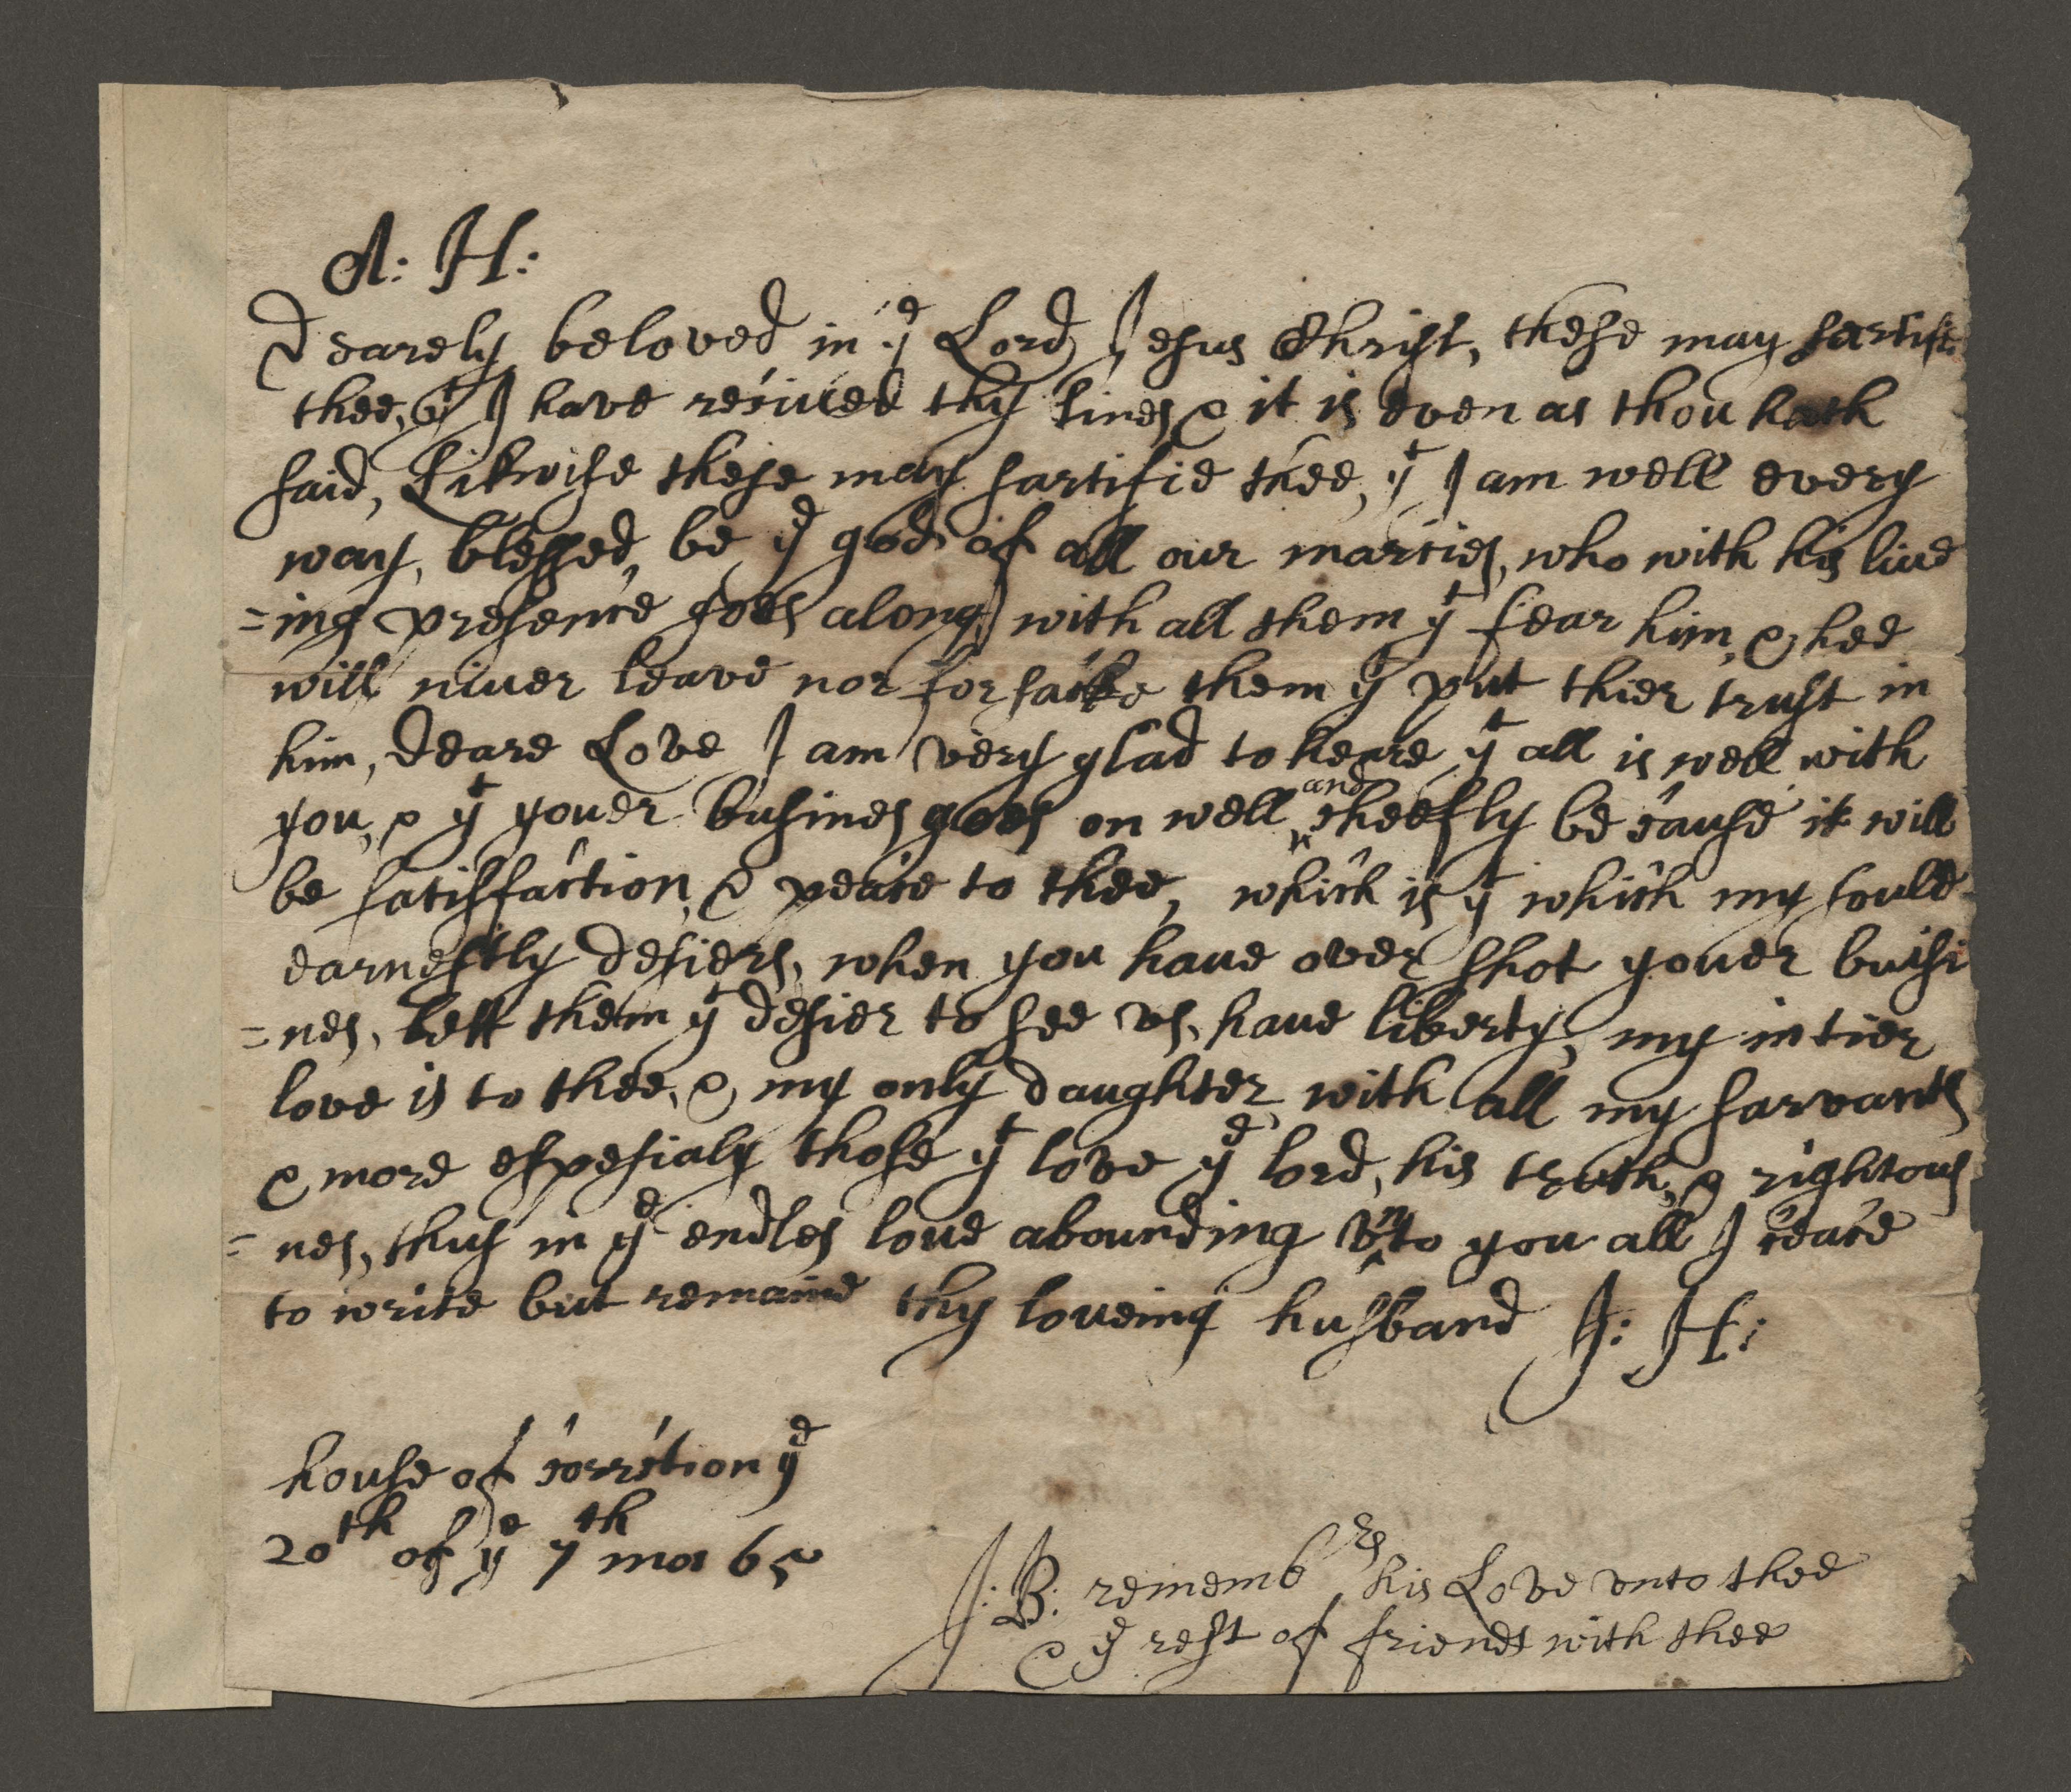 A: H:
Dearely beloved in ye Lord Jesus Christ, these may sartifi
thee, yt I have reciued thy lines & it is even as thou hath
said, Likwise these may sartifie thee, yt I am well every
way, blessed, be ye god of all our marcies, who with his live
=ing presence goes along with all them yt fear him, & hee
will niuer leave nor forsacke them yt put thier trust in
him, deare Love I am very glad to heare yt all is well with
you, & yt youer busines goes on well and cheefly be cause it will
be satisfaction, & peace to thee, which is yt which my soule
earnestly desiers, when you haue over shot youer buisi
=nes, lett them yt desier to see vs, haue liberty, my intier
love is to thee, & my only daughter with all my sarvants
& more espesialy those yt love ye lord, his truth, & rightous
=nes, thus in ye endles loue abounding vnto you all I ceace
to write but remaine thy loveing husband J: H:
house of corrction ye
20th of ye 7th mo 65
J: B: remembrs his Love vnto thee
& ye rest of friends with thee